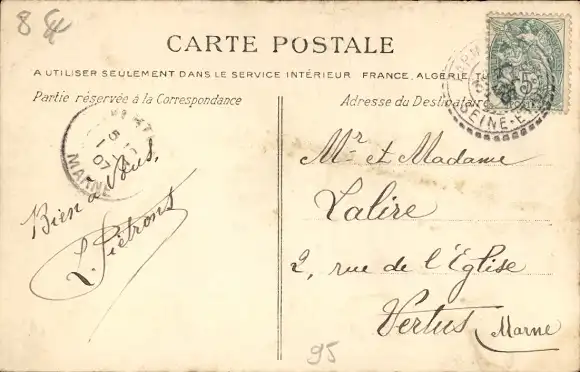 8
CARTE POSTALE
A UTILISER SEULEMENT DANS LE SERVICE INTÉRIEUR FRANCE, ALGÉRIE,
Partie réservée à la Correspondance
Adresse du Destinataire
SEINE-E
5
07
MARNE
Bien à Vous,
L. Piétrons
Mr et Madame
Lalire
2, rue de l'Eglise
Vertus (Marne
95